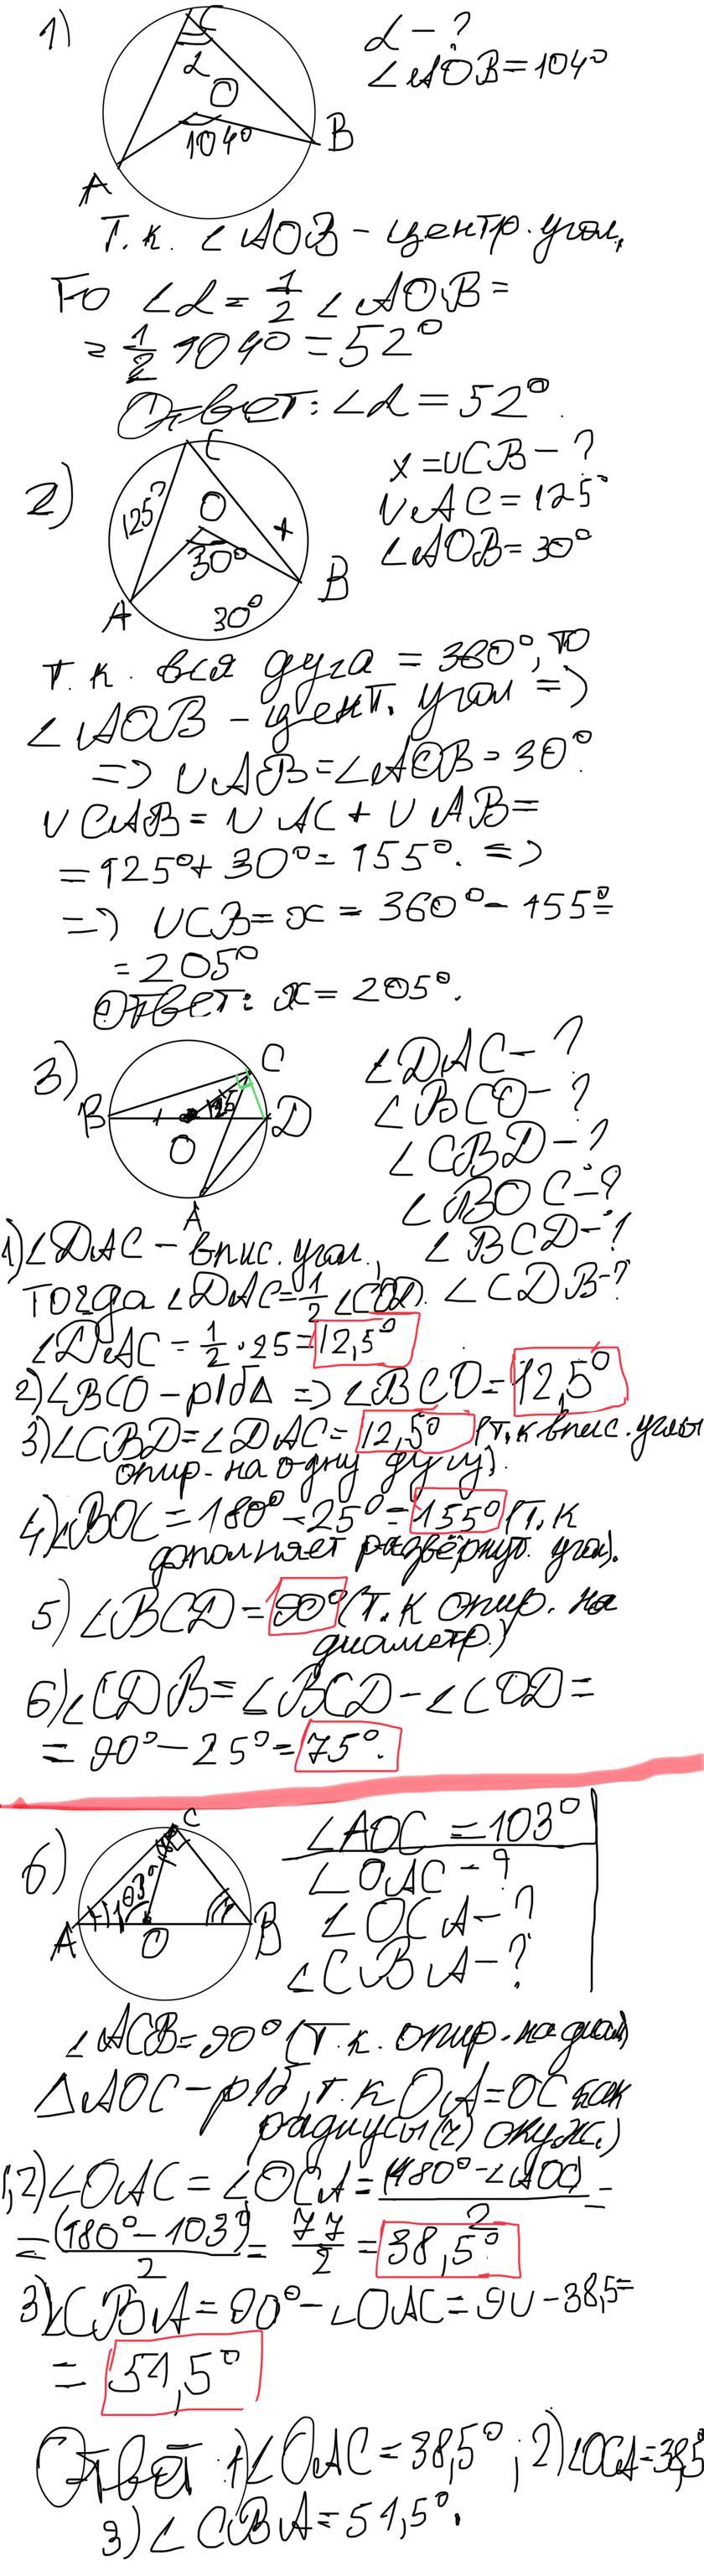 1)
C
α
O
104°
A
B
α - ?
∠AOB = 104°
Т.к. ∠AOB - центр. угол,
то ∠α = 1/2 ∠AOB =
= 1/2 104° = 52°
Ответ: ∠α = 52°.
2)
C
125°
O
x
30°
A
B
30°
x = ∪CB - ?
∪AC = 125°
∠AOB = 30°
Т.к. вся дуга = 360°, то
∠AOB - цент. угол =>
=> ∪AB = ∠AOB = 30°
∪CAB = ∪AC + ∪AB =
= 125° + 30° = 155°. =>
=> ∪CB = x = 360° - 155° =
= 205°
Ответ: x = 205°.
3)
C
B
25
D
O
A
∠DAC - ?
∠BCO - ?
∠CBD - ?
∠BOC - ?
∠BCD - ?
∠CDB - ?
1) ∠DAC - впис. угол,
тогда ∠DAC = 1/2 ∠COD.
∠DAC = 1/2 · 25 = 12,5°
2) ∠BCO - р/бΔ => ∠BCO = 12,5°
3) ∠CBD = ∠DAC = 12,5° (т.к впис. углы
опир. на одну дугу).
4) ∠BOC = 180° - 25° = 155° (т.к
дополняет развёрнут. угол).
5) ∠BCD = 90° (т.к опир. на
диаметр.)
6) ∠CDB = ∠BCD - ∠COD =
= 90° - 25° = 75°.
6)
C
103°
A
O
B
∠AOC = 103°
∠OAC - ?
∠OCA - ?
∠CBA - ?
∠ACB = 90° (т.к. опир. на диам)
ΔAOC - р/б, т.к OA = OC как
радиусы (r) окуж.)
1,2) ∠OAC = ∠OCA = (180° - ∠AOC)/2 =
= (180° - 103°)/2 = 77/2 = 38,5°
3) ∠CBA = 90° - ∠OAC = 90 - 38,5 =
= 51,5°
Ответ: 1) ∠OAC = 38,5°; 2) ∠OCA = 38,5°
3) ∠CBA = 51,5°.